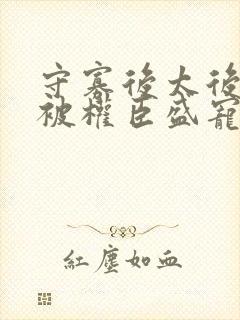 守寡後太後
被權臣盛寵
紅塵如血